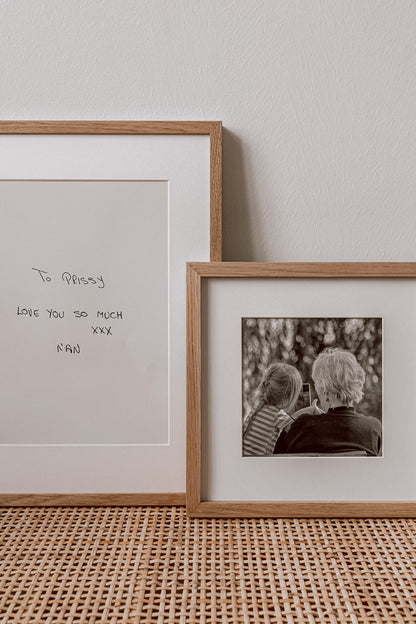 To PRISSY
LOVE YOU SO MUCH
XXX
NAN